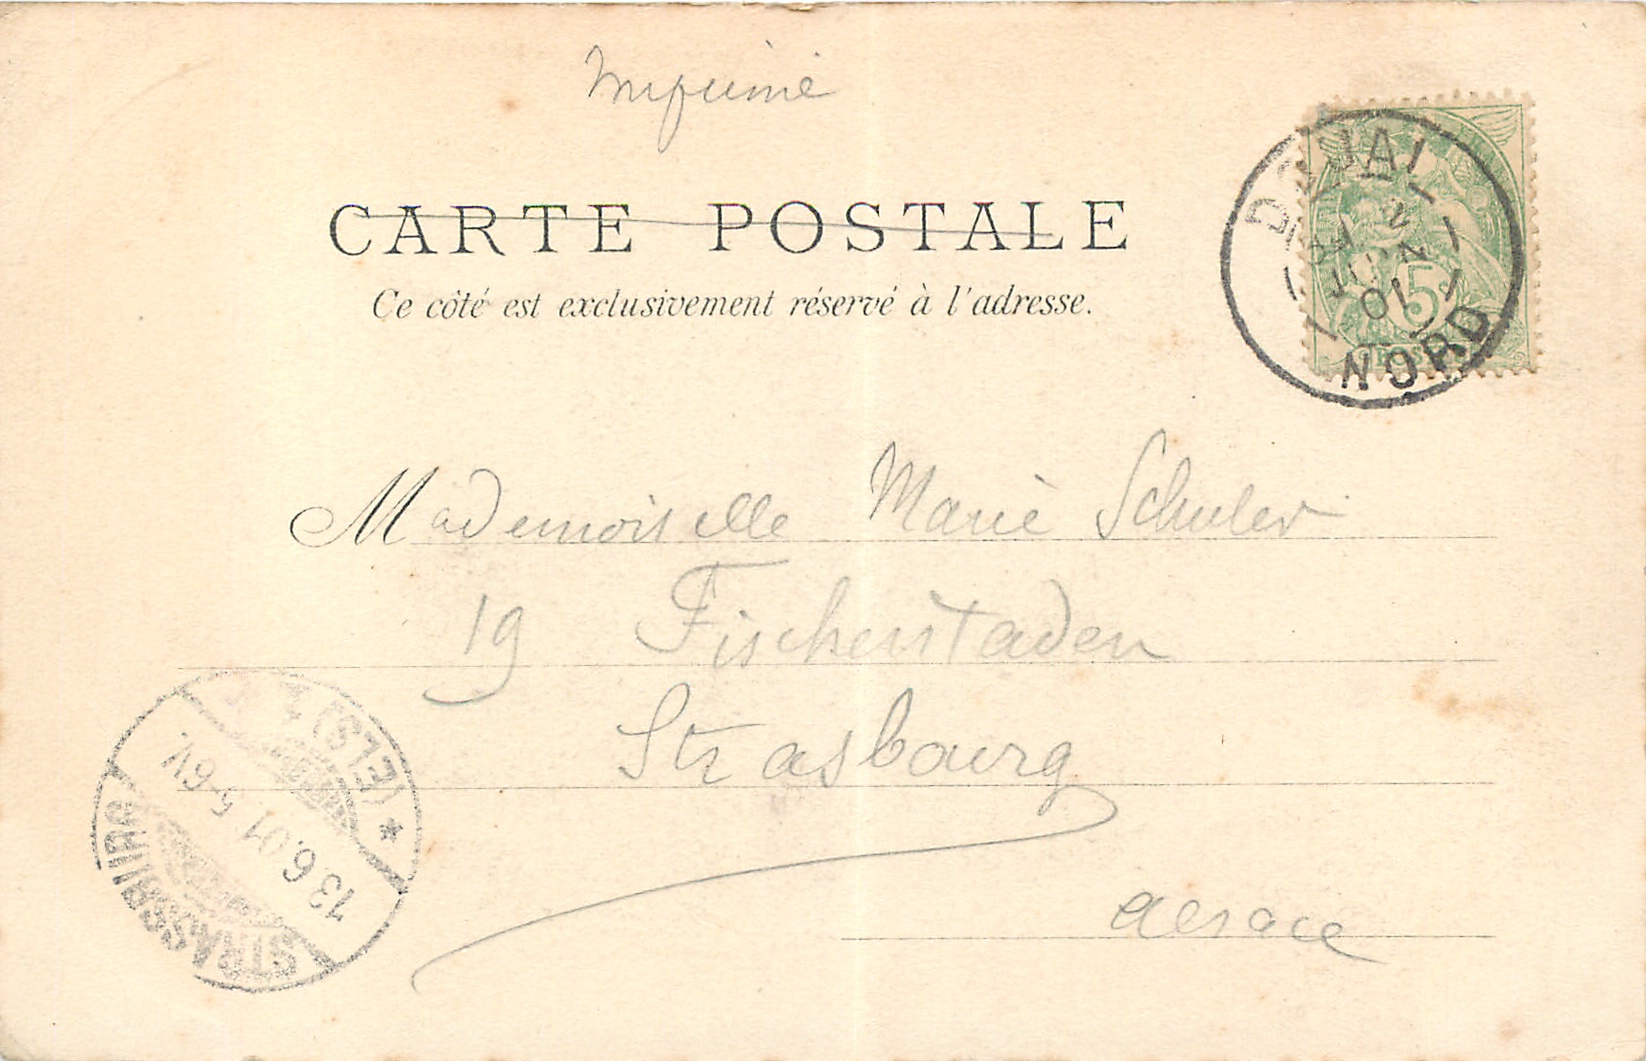 Imprimé
CARTE POSTALE
Ce côté est exclusivement réservé à l'adresse.
DOUAI
JUIN
01
NORD
5
Mademoiselle Marie Schuler
19 Fischerstaden
Strasbourg
Alsace
STRASSBURG (ELS)
13.6.01. 5-6V.
*